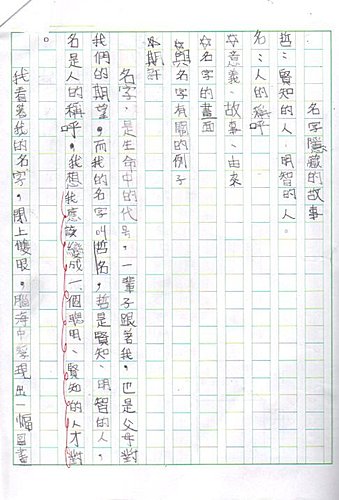 名字隱藏的故事
哲：賢知的人、明智的人。
名：人的稱呼
☆意義、故事、由來
☆名字的畫面
☆與名字有關的例子
☆期許
名字，是生命中的代号，一輩子跟著我，也是父母對
我們的期望，而我的名字叫哲名，哲是賢知、明智的人，
名是人的稱呼，我想我應該變成一個聰明、賢知的人才對
。
我看著我的名字，閉上雙眼，腦海中浮現出一幅圖畫